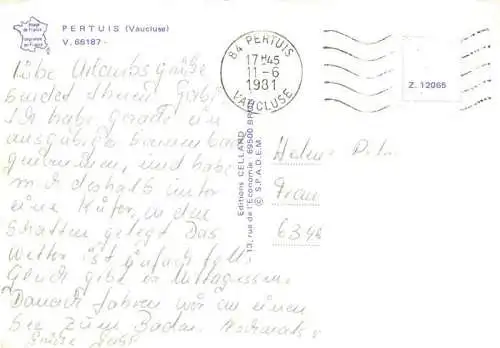 Image de France
PERTUIS (Vaucluse)
V. 66187 -
84 PERTUIS
17H45
11-6
1981
VAUCLUSE
Z. 12065
Editions CELLARD
13, rue de l'Economie 69500 BRON
© S.P.A.D.E.M.
Liebe Urlaubsgrüße
sendet Ihnen Gabi
Ich habe gerade ein
ausgiebiges Sonnenbad
und habe
mich deshalb unter
eine Kiefer, in den
Schatten gelegt Das
Wetter ist einfach toll
Gleich gibt es Mittagessen.
Danach fahren wir an einen
See zum Baden. Nochmals
Grüße Gabi
Frau